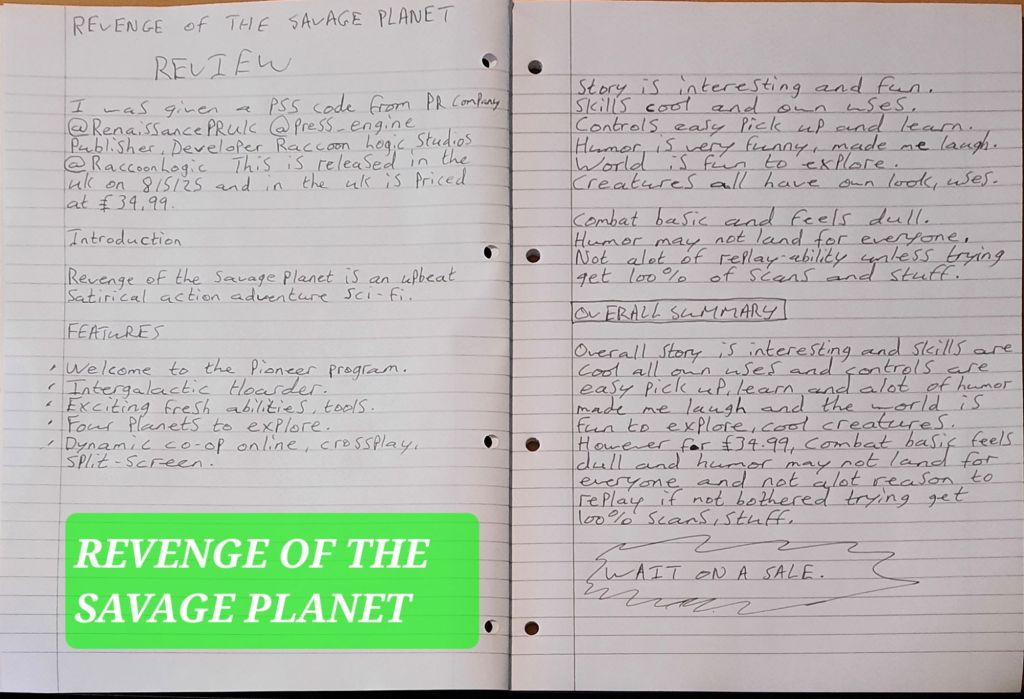 REVENGE OF THE SAVAGE PLANET
REVIEW
I was given a PS5 code from PR Company
@RenaissancePRUK @Press_engine
Publisher, Developer Raccoon Logic Studios
@RaccoonLogic This is released in the
UK on 8/5/25 and in the UK is Priced
at £34.99.
Introduction
Revenge of the Savage Planet is an upbeat
Satirical action adventure Sci-fi.
FEATURES
Welcome to the Pioneer program.
Intergalactic Hoarder.
Exciting fresh abilities, tools.
Four Planets to explore.
Dynamic co-op online, crossplay,
Split-Screen.
REVENGE OF THE
SAVAGE PLANET
Story is interesting and fun.
Skills cool and own uses.
Controls easy Pick up and learn.
Humor is very funny, made me laugh.
World is fun to explore.
Creatures all have own look, uses.
Combat basic and feels dull.
Humor may not land for everyone.
Not alot of replay-ability unless trying
get 100% of Scans and stuff.
OVERALL SUMMARY
Overall Story is interesting and Skills are
Cool all own uses and controls are
easy Pick up, learn and alot of humor
made me laugh and the world is
fun to explore, cool creatures.
However for £34.99, Combat basic feels
dull and humor may not land for
everyone and not alot reason to
replay if not bothered trying get
100% Scans, Stuff.
WAIT ON A SALE.